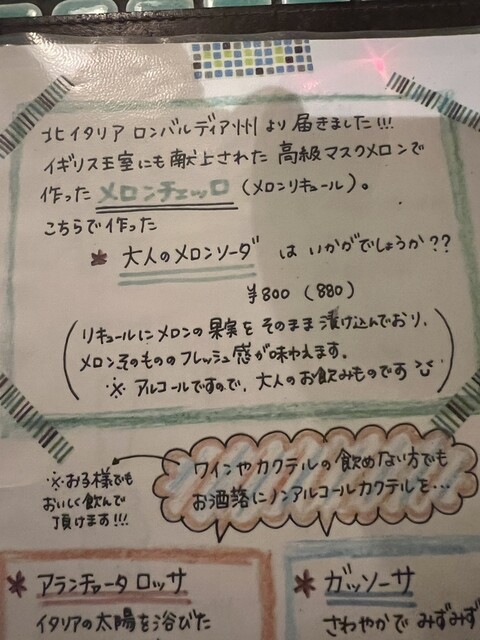 北イタリア ロンバルディア州より届きました!!!
イギリス王室にも献上された 高級マスクメロンで
作った メロンチェッロ (メロンリキュール)。
こちらで作った
* 大人のメロンソーダ は いかがでしょうか??
¥800 (880)
(リキュールにメロンの果実をそのまま漬け込んでおり、
メロンそのもののフレッシュ感が味わえます。
※ アルコールですので、大人のお飲みものです)
ワインやカクテルの飲めない方でも
お洒落にノンアルコールカクテルを…
※お子様でも
おいしく飲んで
頂けます!!!
* アランチャータ ロッサ
イタリアの太陽を浴びた
* ガッソーサ
さわやかで みずみず